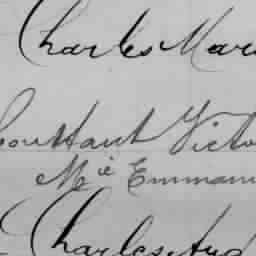 Charles Mari
Couttant Victo
Mie Emmanu
Charles, Aug